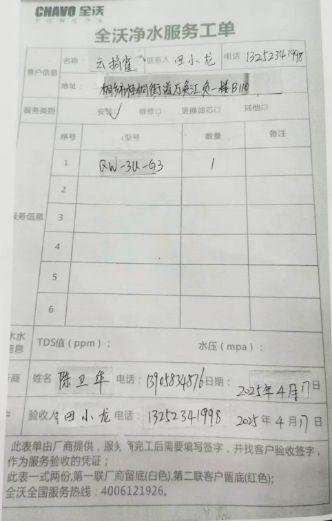 CHAVO 全沃
全沃净水服务工单
客户信息
名称 联系人 田小龙 电话 13252341998
地址:
服务类别 安装✓ 维修□ 更换滤芯□ 其他□
序号 型号 数量 备注
1 RW-3U-G3 1
2
服务信息 3
4
5
6
TDS值(ppm): 水压(mpa):
姓名 陈卫华 电话: 13905834876 日期: 2025年4月17日
验收人 田小龙 电话: 13252341998 2025年4月17日
此表单由厂商提供,服务完工后需要填写签字,并找客户验收签字,
作为服务验收的凭证;
此表一式两份,第一联厂商留底(白色),第二联客户留底(红色);
全沃全国服务热线:4006121926。